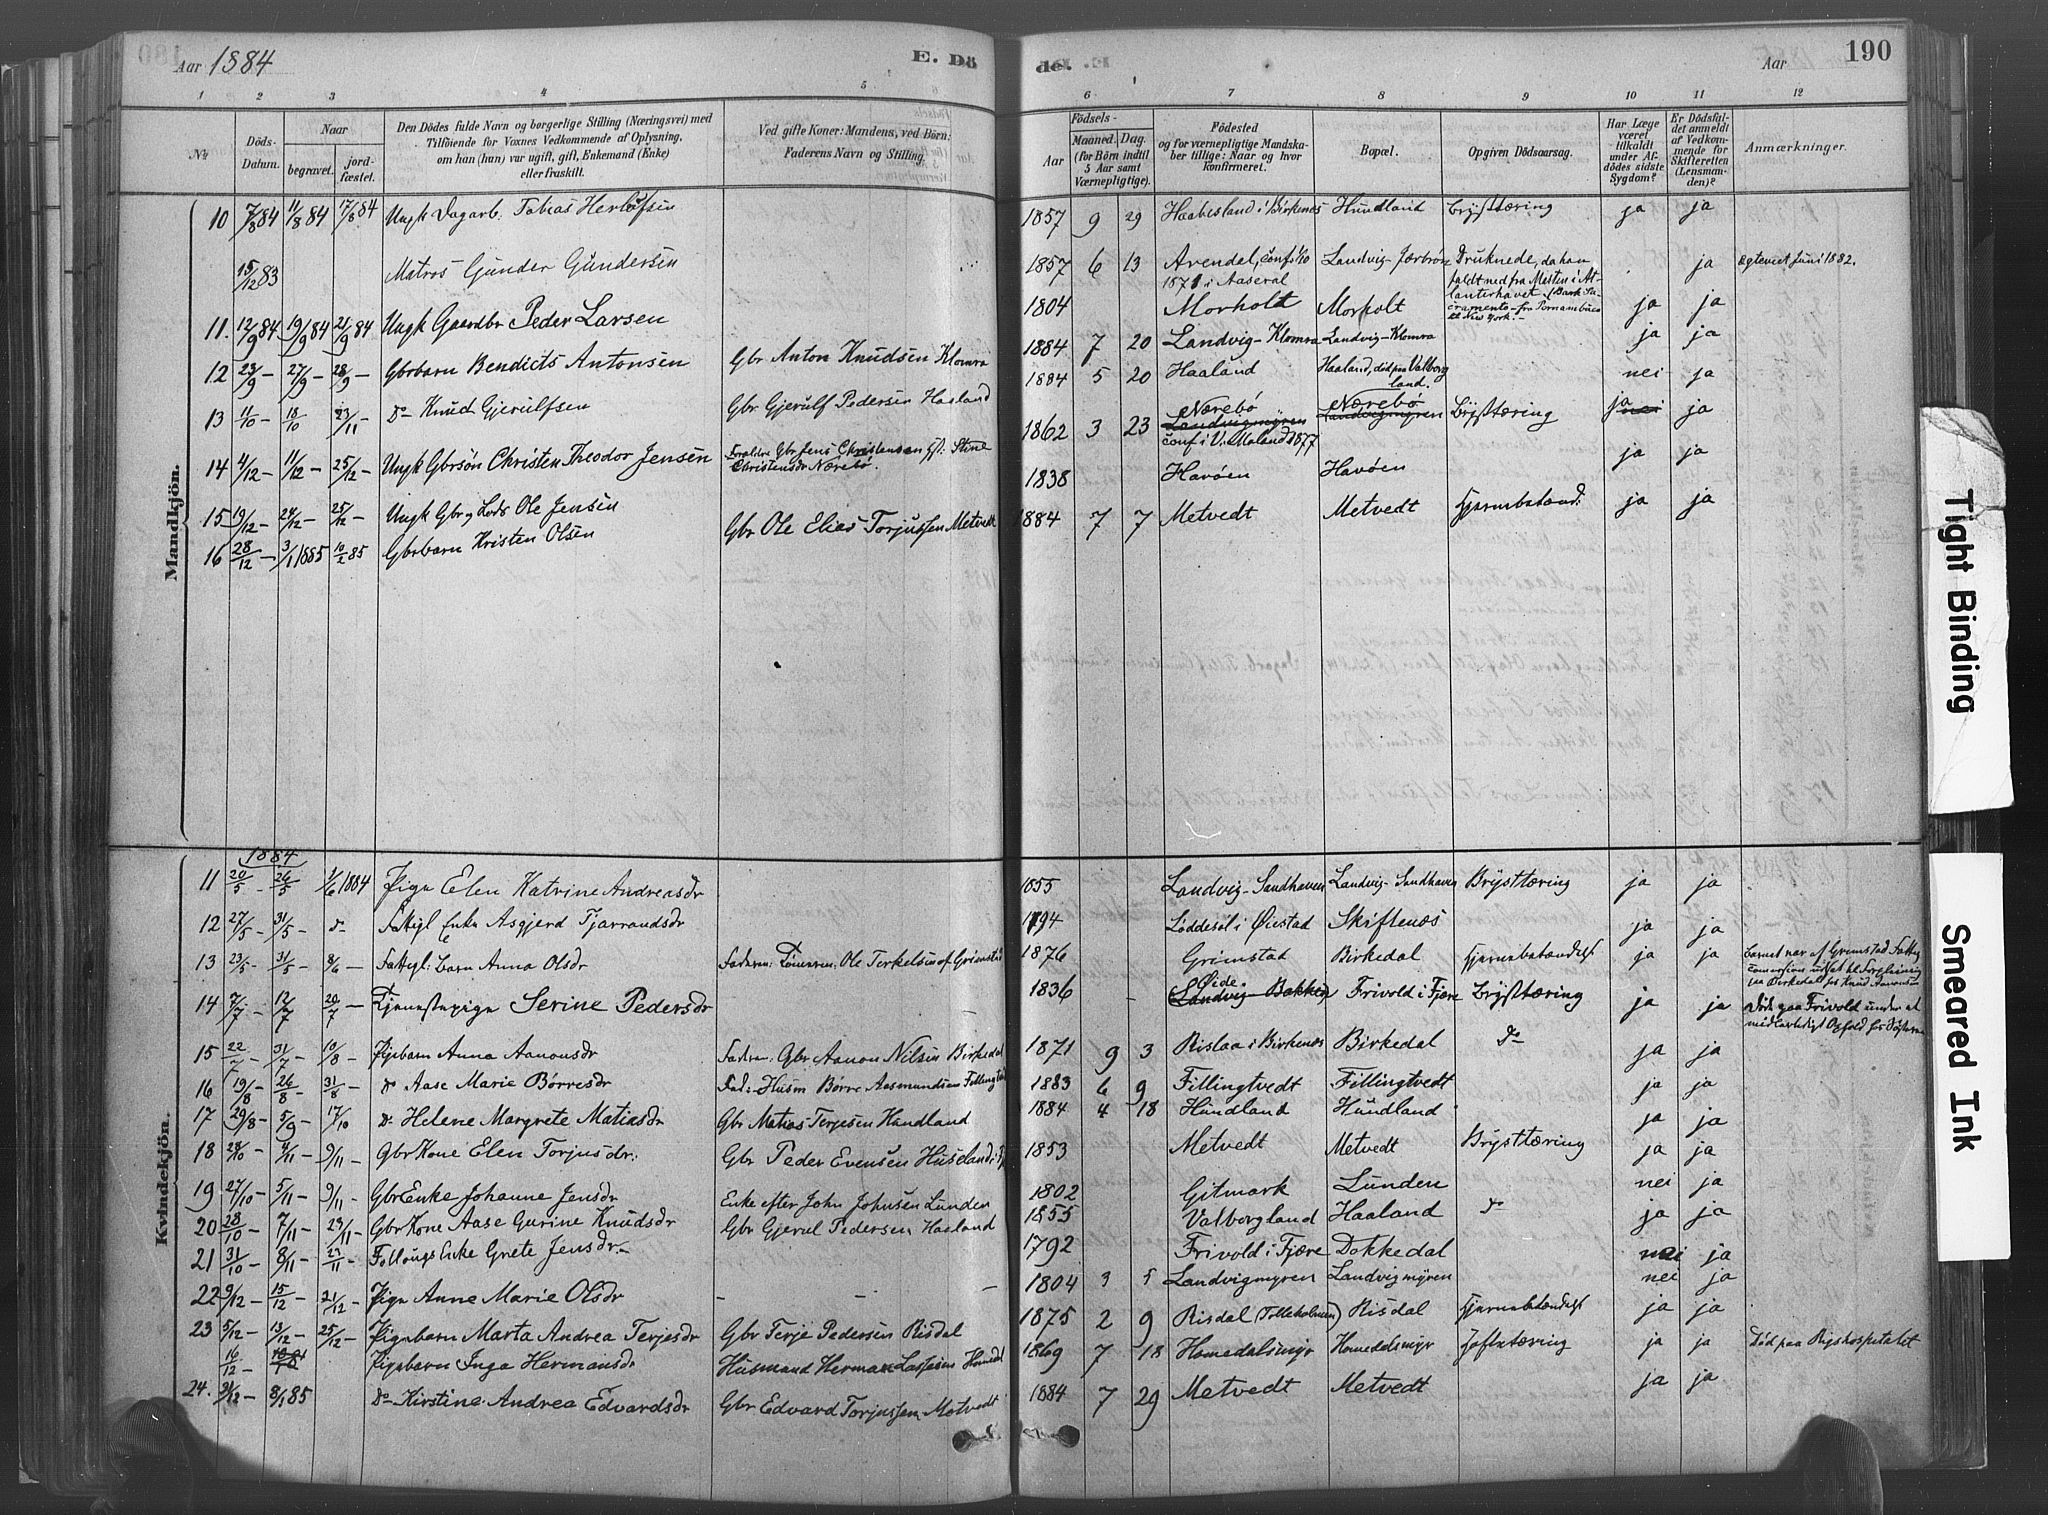 Aar 1884
E. Dö
de.
Aar
190
1 2 3 4 5 6
6 7 8 9 10 11 12
No
Döds-Datum.
Naar
begravet.
jordfæstet.
Den Dödes fulde Navn og borgerlige Stilling (Næringsvei) med
Tilföiende for Voxnes Vedkommende af Oplysning,
om han (hun) var ugift, gift, Enkemand (Enke)
eller fraskilt.
Ved gifte Koner: Mandens, ved Börn:
Faderens Navn og Stilling.
Födsels-
Aar
Maaned. Dag.
(for Börn indtil
5 Aar samt
Værnepligtige).
Födested
og for værnepligtige Mandskaber tillige: Naar og hvor
konfirmeret.
Bopæl.
Opgiven Dödsaarsag.
Har Læge
været
tilkaldt
under Afdödes sidste
Sygdom?
Er Dödsfaldet anmeldt
af Vedkommende for
Skifteretten
(Lensmanden)?
Anmærkninger.
Mandkjön.
10 7/8 84 11/8 84 17/8 84 Ungk Dagarb. Tobias Herlofsen 1857 9 29 Haabesland i Birkenes Hundland Brysttæring ja ja
15/12 83 Matros Gunder Gundersen 1857 6 13 Arendal, conf. 1/10 1871 i Aaseral Landvig-Jærbrön Druknede, da han faldt ned fra Masten i Atlanterhavet (Bark Sacramento - fra Pernambuco til New York. - ja ægteviet Juni 1882.
11. 12/9 84 19/9 84 21/9 84 Ungk Gaardbr Peder Larsen 1804 Morholt Morholt ja ja
12 23/9 - 27/9 - 28/9 - Gbrbarn Bendicts Antonsen Gbr Anton Knudsen Klomra 1884 7 20 Landvig-Klomra Landvig-Klomra ja ja
13 11/10 - 18/10 23/11 - Do Knud Gjerulfsen Gbr Gjerulf Pedersen Haaland 1884 5 20 Haaland Haaland, död paa Valborgland. nei ja
14 4/12 - 11/12 - 25/12 - Ungk Gbrsön Christen Theodor Jensen Foraldre Gbr Jens Christensen Stine Christensdr Nærebö. 1862 3 23 Nærebö Landvigmyren conf i V. Moland 1877 Nærebö Landvigmyren Brysttæring ja nei ja
15 19/12 - 24/12 - 25/12 - Ungk Gbr og Lods Ole Jensen 1838 Havöen Havöen ja ja
16 28/12 - 3/1 1885 10/2 85 Gbrbarn Kristen Olsen Gbr Ole Elias Torjussen Metvedt 1884 7 7 Metvedt Metvedt Hjernebetænd: ja ja
Kvindekjön.
1884
11 20/5 - 26/5 1/6 1884 Pige Elen Katrine Andreasdr 1855 Landvig-Sandhaven Landvig-Sandhaven Brysttæring ja ja
12 27/5 - 31/5 - do Fattigl Enke Asgjerd Tjarrandsdr 1794 Løddesøl i Øiestad Skiftenæs ja ja
13 23/5 - 31/5 - 8/6 - Fattigl: Barn Anna Olsdr Faderen: Tömmerm: Ole Terkelsen af Grimstad 1876 Grimstad Birkedal Hjernebetændelse ja ja Barnet var af Grimstad Fattigcomission udsat til Forpleining paa Birkedal hos Knud Aanonsen
14 7/7 - 12/7 20/7 - Tjenestepige Serine Pedersdr - 1836 - Øide. Landvig-Bakken Frivold i Fjære Brysttæring ja ja Döde paa Frivold under et midlertidigt Ophold hos Söstren
15 22/7 - 31/7 - 10/8 - Pigebarn Anna Aanonsdr Faderen: Gbr Aanon Nilsen Birkedal 1871 9 3 Rislaa i Birkenæs Birkedal Do ja ja
16 19/8 - 26/8 - 31/8 - Do Aase Marie Börresdr Fad: Husm Börre Aasmundsen Fillingtvedt 1883 6 9 Fillingtvedt Fillingtvedt ja ja
17 29/8 - 5/9 - 17/10 Do Helene Margrete Matiasdr Gbr Matias Terjesen Hundland 1884 4 18 Hundland Hundland ja ja
18 28/10 - 4/11 - 9/11 - Gbr Kone Elen Torjusdr. Gbr Peder Evensen Huseland 1853 Metvedt Metvedt Brysttæring ja ja
19 27/10 - 5/11 - 9/11 - Gbr Enke Johanne Jensdr Enke efter John Johnsen Lunden 1802 Gitmark Lunden nei ja
20 28/10 - 7/11 - 23/11 - Gbr Kone Aase Gurine Knudsdr Gbr Gjerul Pedersen Haaland 1855 Valborgland Haaland Do ja ja
21 31/10 - 8/11 - 23/11 - Follougs Enke Grete Jensdr - 1792 Frivold i Fjære Dokkedal nei ja
22 9/12 - 15/12 - 21/12 - Pige Anne Marie Olsdr - - - 1804 3 5 Landvigmyren Landvigmyren nei ja
23 5/12 - 13/12 - 25/12 - Pigebarn Marta Andrea Terjesdr Gbr Terje Pedersen Risdal 1875 2 9 Risdal (Tolleholmen) Risdal Hjernebetændelse ja ja
16/12 - Pigebarn Inga Hermansdr Husmand Herman Lassesen Homedal 1869 7 18 Homedalsmyr Homedalsmyr Hoftetæring ja ja Död paa Rigshospitalet
24. 31/12 - 8/1 85 Do Kirstine Andrea Edvardsdr Gbr Edvard Torjussen Metvedt 1884 7 29 Metvedt Metvedt ja ja
Tight Binding
Smeared Ink